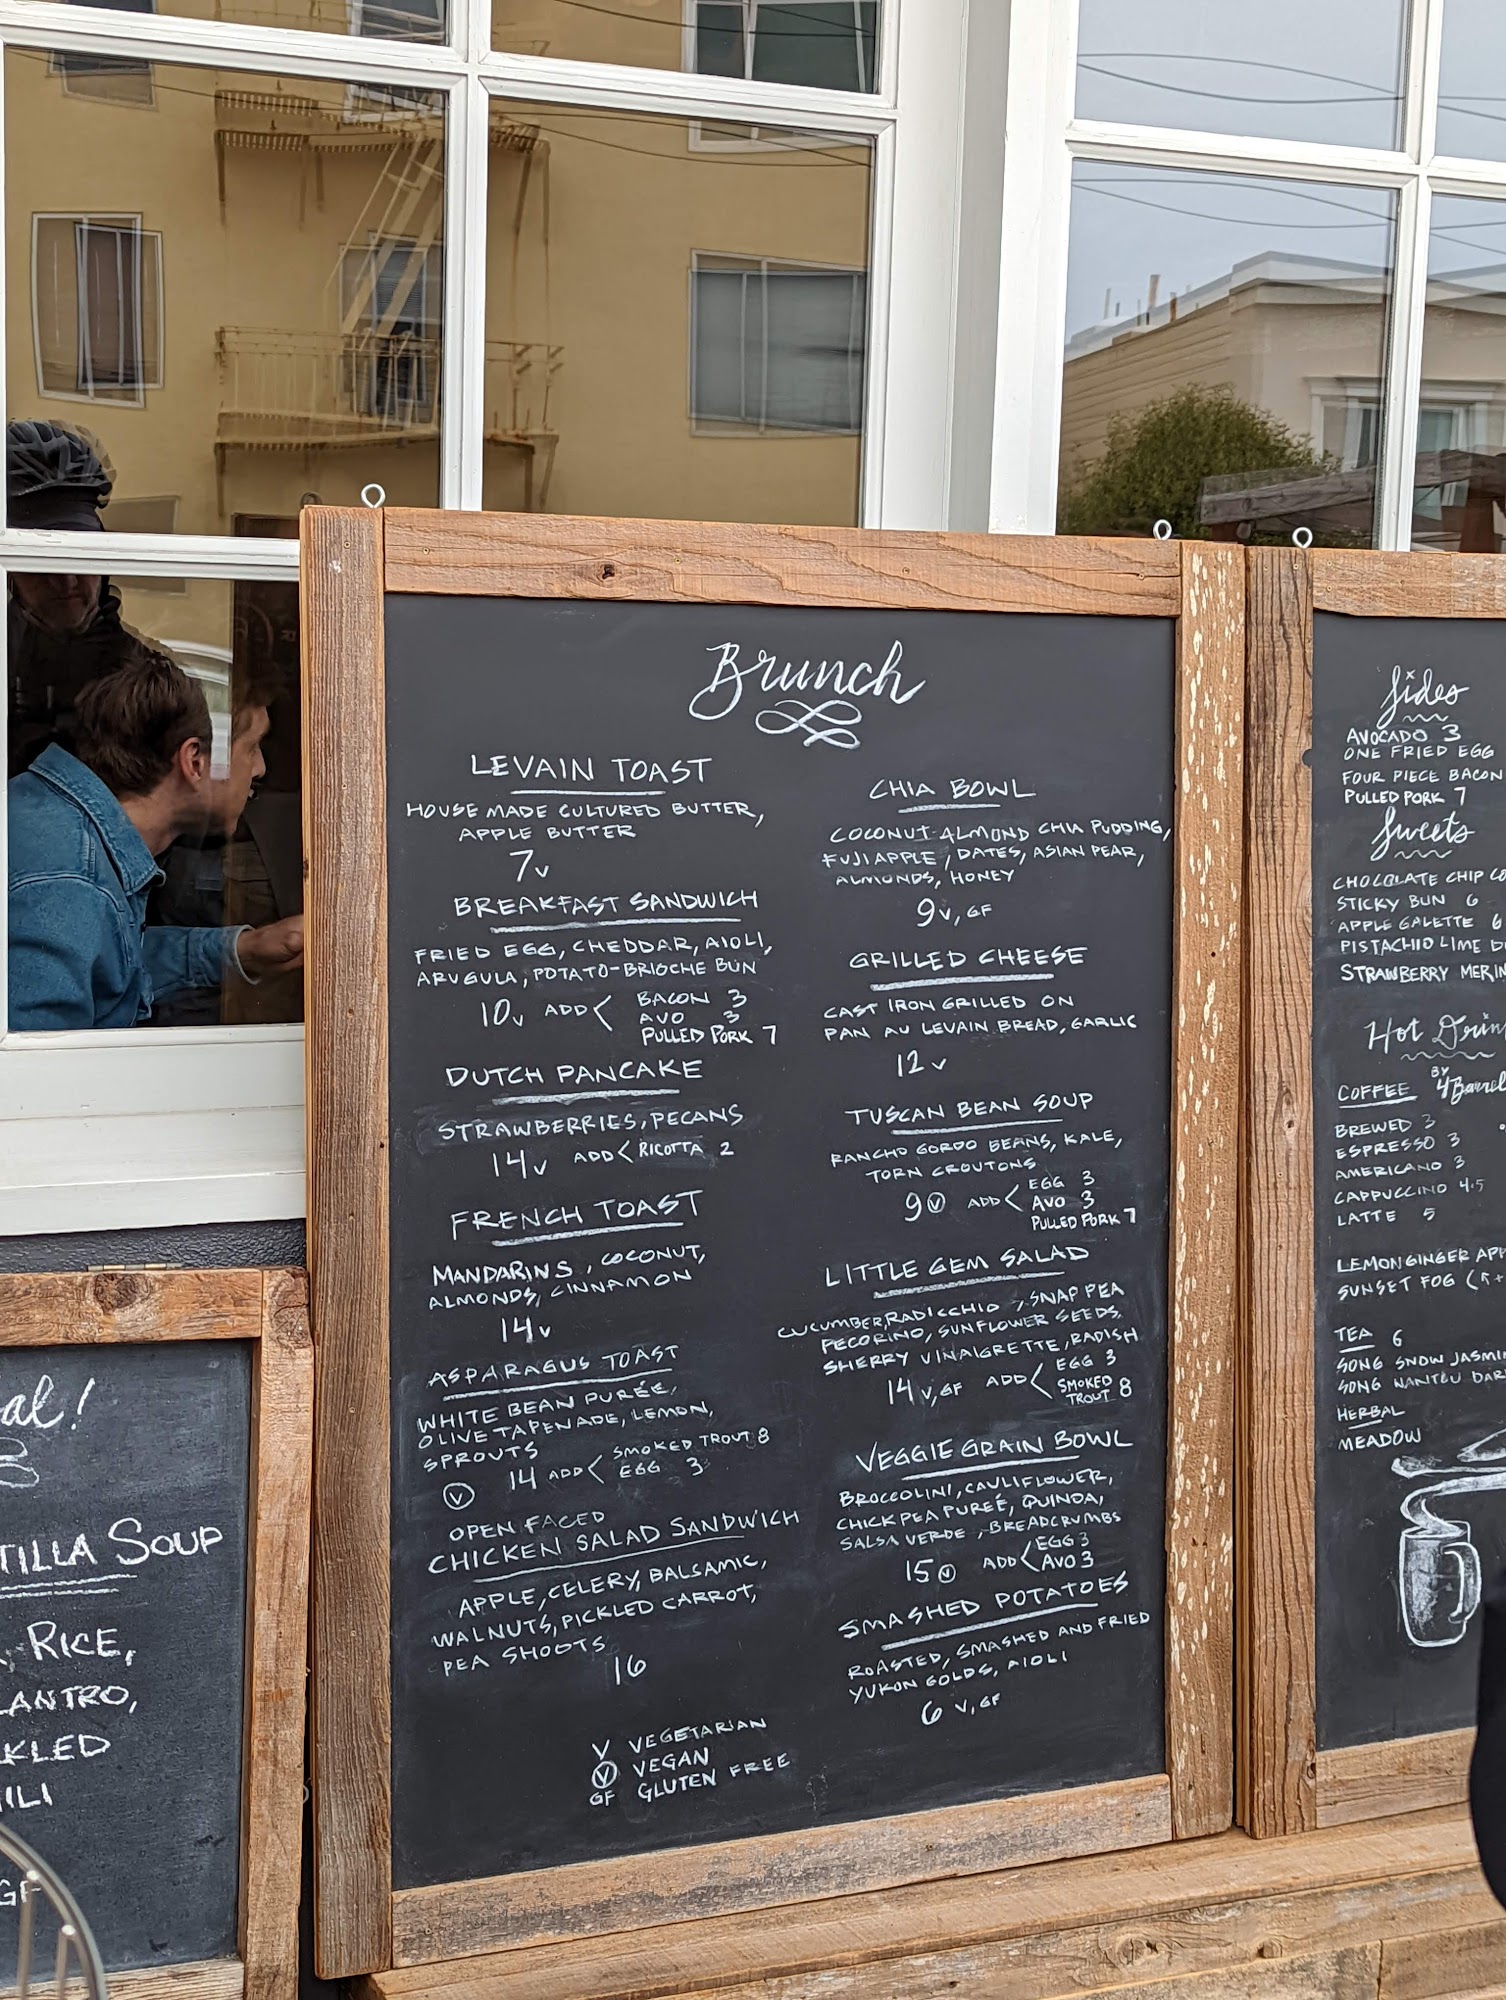 Brunch
LEVAIN TOAST
HOUSE MADE CULTURED BUTTER,
APPLE BUTTER
7 V
BREAKFAST SANDWICH
FRIED EGG, CHEDDAR, AIOLI,
ARUGULA, POTATO-BRIOCHE BUN
10 V ADD < BACON 3
AVO 3
PULLED PORK 7
DUTCH PANCAKE
STRAWBERRIES, PECANS
14 V ADD < RICOTTA 2
FRENCH TOAST
MANDARINS, COCONUT,
ALMONDS, CINNAMON
14 V
ASPARAGUS TOAST
WHITE BEAN PURÉE,
OLIVE TAPENADE, LEMON,
SPROUTS
Ⓥ 14 ADD < SMOKED TROUT 8
EGG 3
OPEN FACED
CHICKEN SALAD SANDWICH
APPLE, CELERY, BALSAMIC,
WALNUTS, PICKLED CARROT,
PEA SHOOTS
16
CHIA BOWL
COCONUT-ALMOND CHIA PUDDING,
FUJI APPLE, DATES, ASIAN PEAR,
ALMONDS, HONEY
9 V, GF
GRILLED CHEESE
CAST IRON GRILLED ON
PAN AU LEVAIN BREAD, GARLIC
12 V
TUSCAN BEAN SOUP
RANCHO GORDO BEANS, KALE,
TORN CROUTONS
9 Ⓥ ADD < EGG 3
AVO 3
PULLED PORK 7
LITTLE GEM SALAD
CUCUMBER, RADICCHIO, SNAP PEA
PECORINO, SUNFLOWER SEEDS,
SHERRY VINAIGRETTE, RADISH
14 V, GF ADD < EGG 3
SMOKED
TROUT 8
VEGGIE GRAIN BOWL
BROCCOLINI, CAULIFLOWER,
CHICKPEA PUREÉ, QUINOA,
SALSA VERDE, BREADCRUMBS
15 Ⓥ ADD < EGG 3
AVO 3
SMASHED POTATOES
ROASTED, SMASHED AND FRIED
YUKON GOLDS, AIOLI
6 V, GF
V VEGETARIAN
Ⓥ VEGAN
GF GLUTEN FREE
Sides
AVOCADO 3
ONE FRIED EGG
FOUR PIECE BACON
PULLED PORK 7
Sweets
CHOCOLATE CHIP CO
STICKY BUN 6
APPLE GALETTE 6
PISTACHIO LIME D
STRAWBERRY MERIN
Hot Drin
COFFEE BY 4 Barrel
BREWED 3
ESPRESSO 3
AMERICANO 3
CAPPUCCINO 4.5
LATTE 5
LEMON GINGER APP
SUNSET FOG (
TEA 6
SONG SNOW JASMI
SONG NANTOU DAR
HERBAL
MEADOW
al!
TILLA SOUP
, RICE,
LANTRO,
KLED
ILI
GF